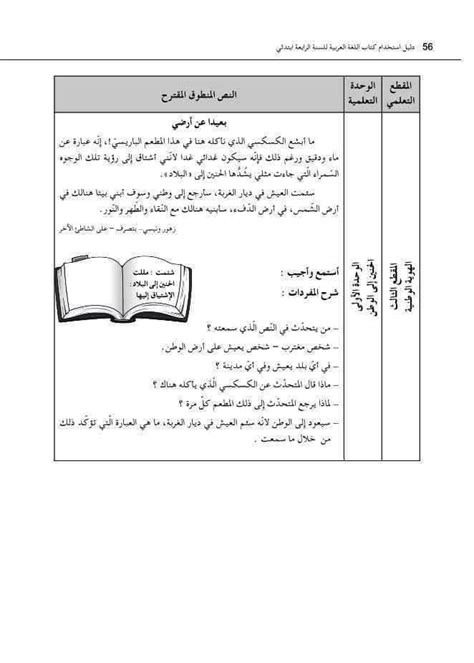 56 دليل استخدام كتاب اللغة العربية للسنة الرابعة ابتدائي
المقطع التعلمي
الوحدة التعلمية
النص المنطوق المقترح
بعيدا عن أرضي
ما أبشع الكسكسي الذي نأكله هنا في هذا المطعم الباريسيّ!، إنّه عبارة عن
ماء ودقيق ورغم ذلك فإنّه سيكون غدائي غدا لأنّني أشتاق إلى رؤية تلك الوجوه
السّمراء الّتي جاءت مثلي يشدُّها الحنين إلى «البلاد».
سئمت العيش في ديار الغربة، سأرجع إلى وطني وسوف أبني بيتا هنالك في
أرض الشّمس، في أرض الدّفء، سأبنيه هنالك مع النّقاء والطّهر والنّور.
زهور ونيسي.. بتصرف – على الشاطئ الآخر
أستمع وأجيب :
شرح المفردات :
سئمت : مللت
الحنين إلى البلاد :
الإشتياق إليها
– من يتحدّث في النّص الّذي سمعته ؟
– شخص مغترب – شخص يعيش على أرض الوطن.
– في أيّ بلد يعيش وفي أيّ مدينة ؟
– ماذا قال المتحدّث عن الكسكسي الّذي يأكله هناك ؟
– لماذا يرجع المتحدّث إلى ذلك المطعم كلّ مرة ؟
– سيعود إلى الوطن لأنّه سئم العيش في ديار الغربة، ما هي العبارة الّتي تؤكّد ذلك
من خلال ما سمعت .
الوحدة الأولى
الحنين إلى الوطن
المقطع الثالث
الهوية الوطنية